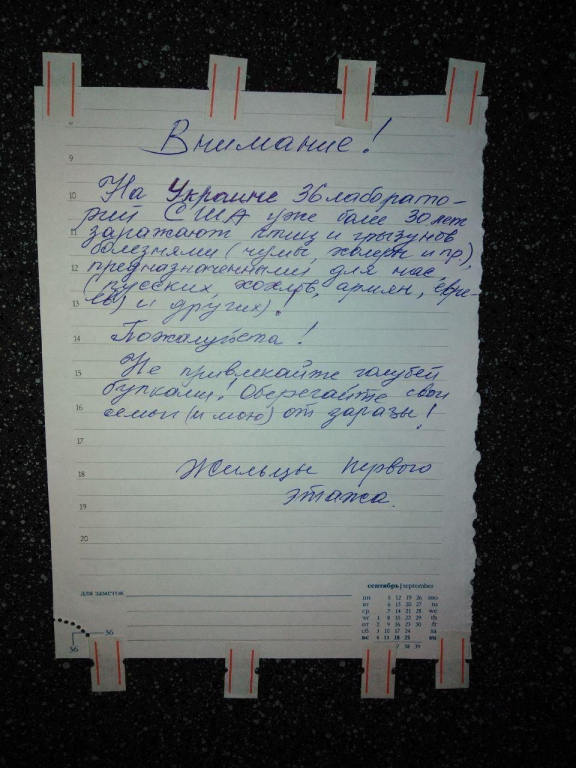 Внимание!
9
На Украине 36 лаборато-
10
рий США уже более 30 лет
11
заражают птиц и грызунов
болезнями (чумы, холеры и пр.),
12
предназначенными для нас,
(русских, хохлов, армян, евре-
13
ев) и других).
14
Пожалуйста!
15
Не привлекайте голубей
булками! Оберегайте свои
16
семьи (и мою) от заразы!
17
18
Жильцы первого
19
этажа.
20
для заметок
сентябрь | september
пн 5 12 19 26 mo
вт 6 13 20 27 tu
ср 7 14 21 28 we
чт 1 8 15 22 29 th
пт 2 9 16 23 30 fr
сб 3 10 17 24 sa
вс 4 11 18 25 su
36
36
37 38 39